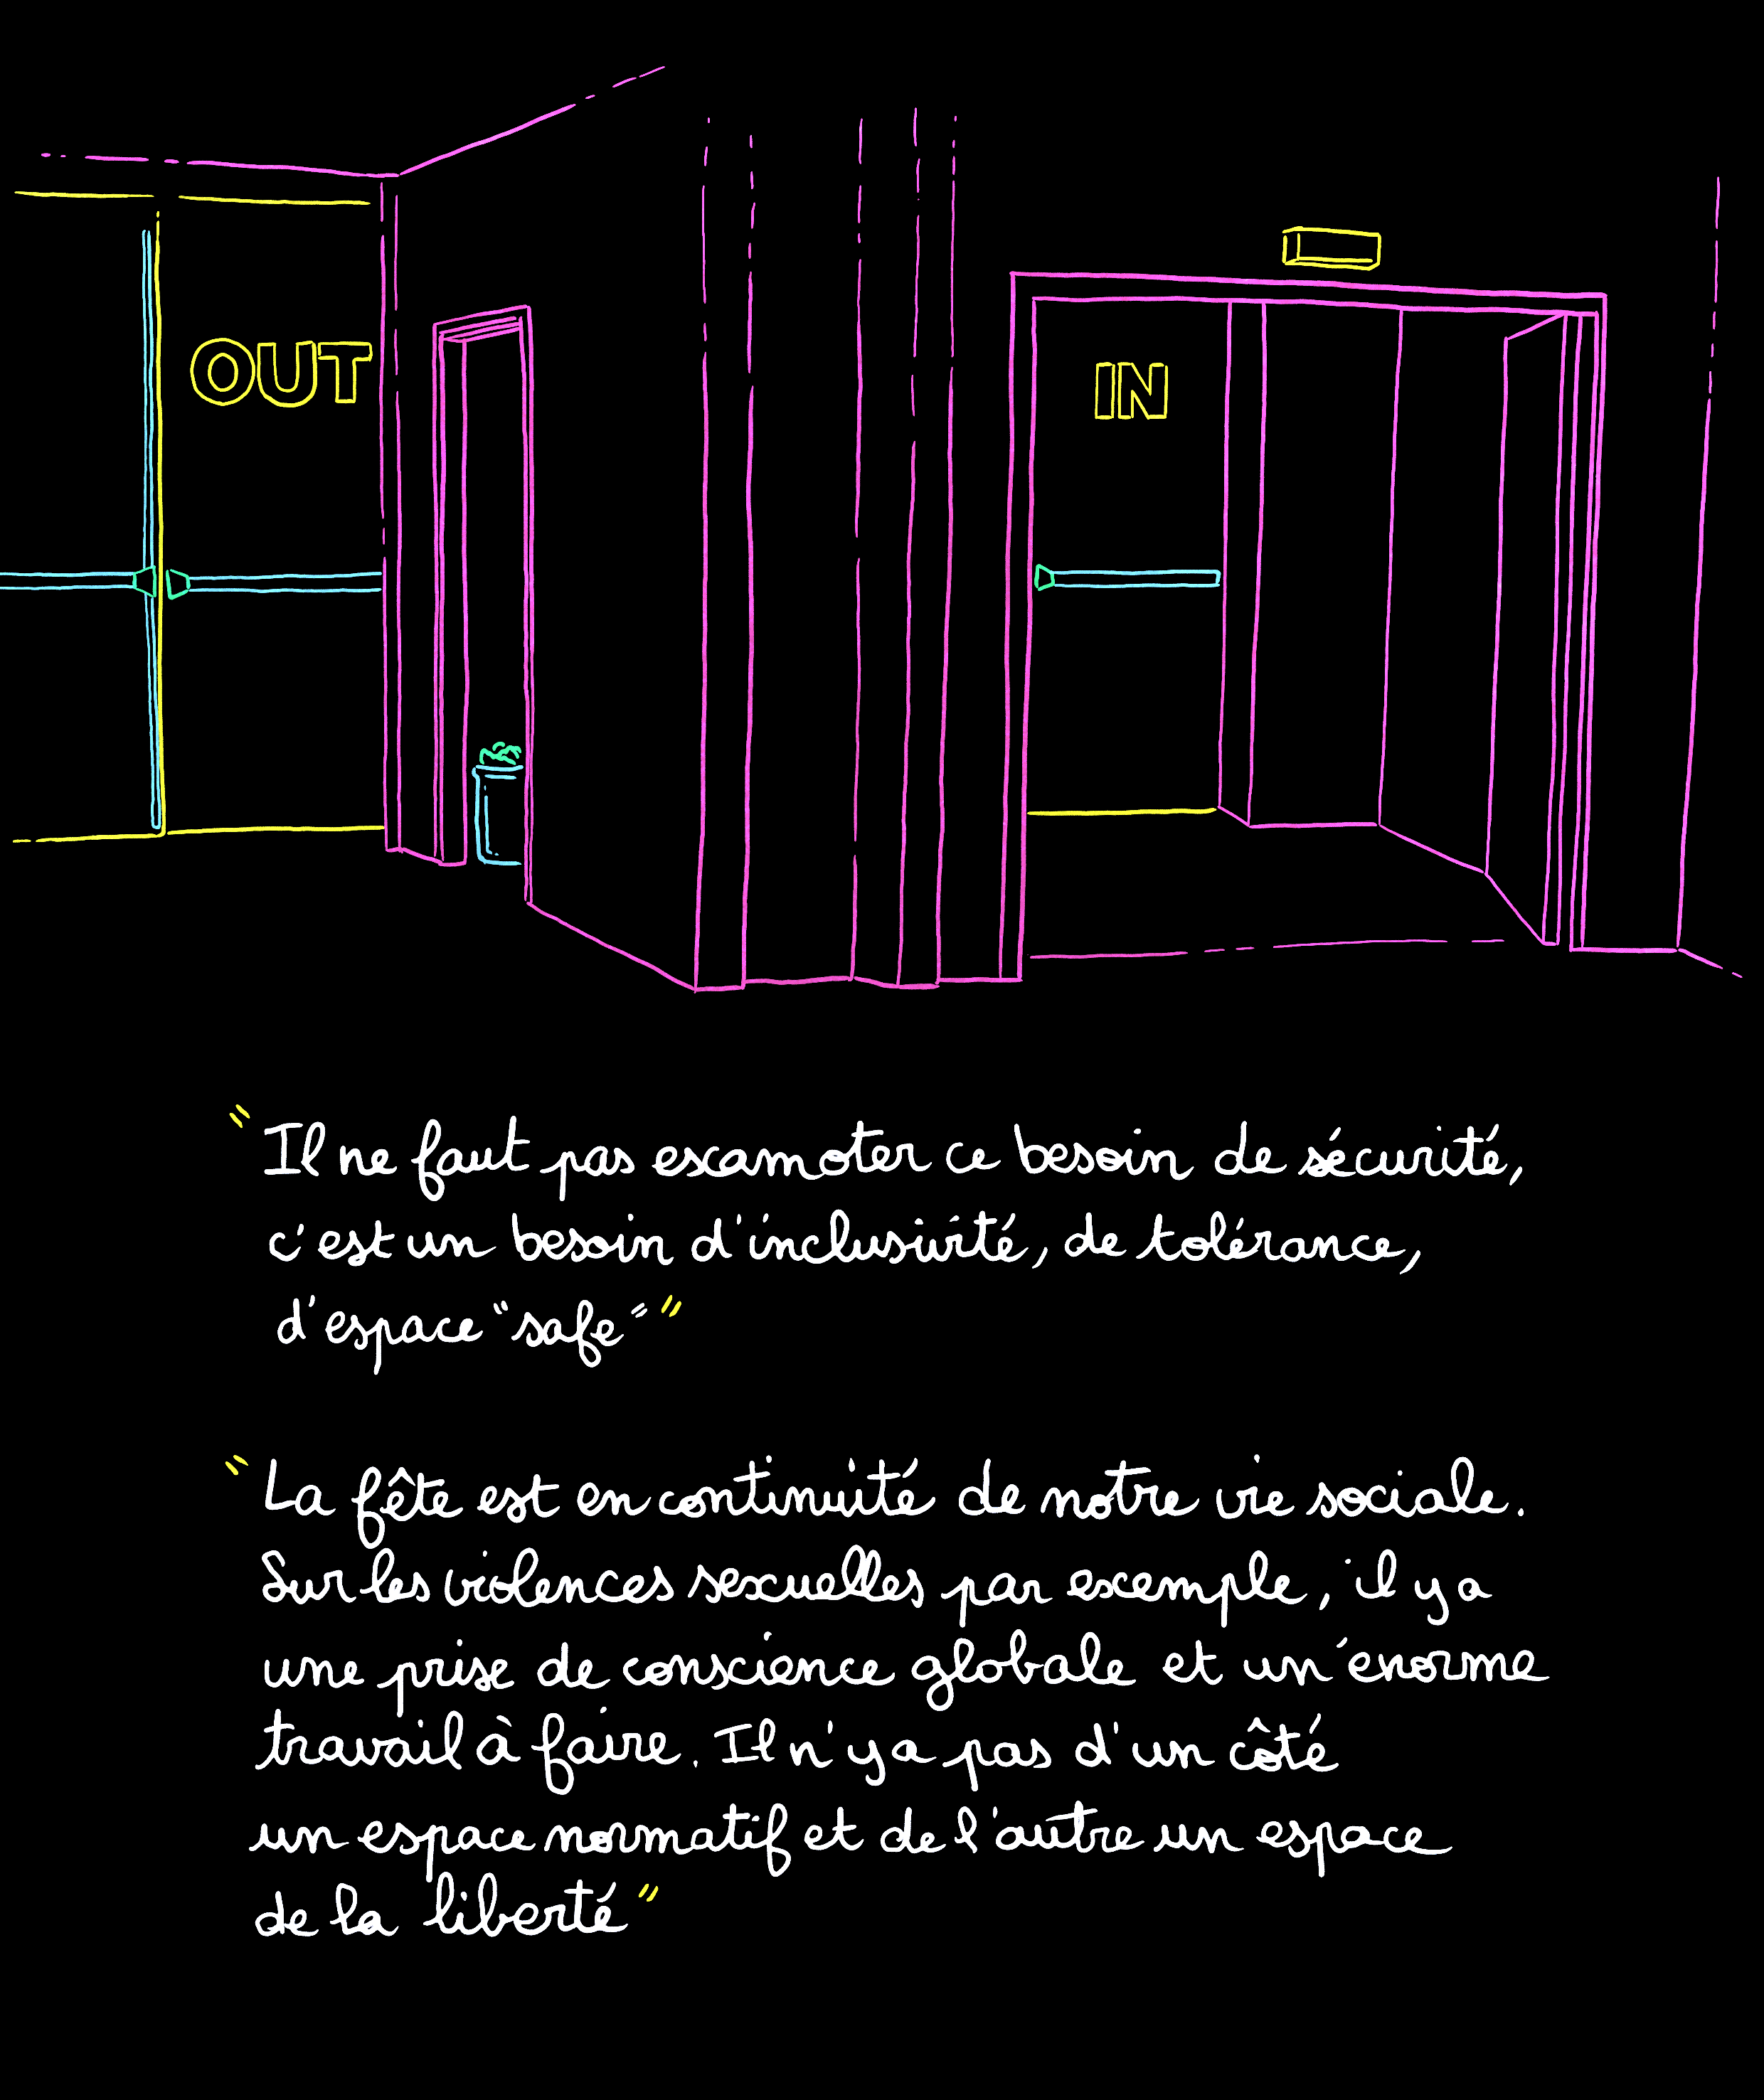 OUT
IN
"Il ne faut pas escamoter ce besoin de sécurité,
c'est un besoin d'inclusivité, de tolérance,
d'espace "safe""
"La fête est en continuité de notre vie sociale.
Sur les violences sexuelles par exemple, il y a
une prise de conscience globale et un énorme
travail à faire. Il n'y a pas d'un côté
un espace normatif et de l'autre un espace
de la liberté"